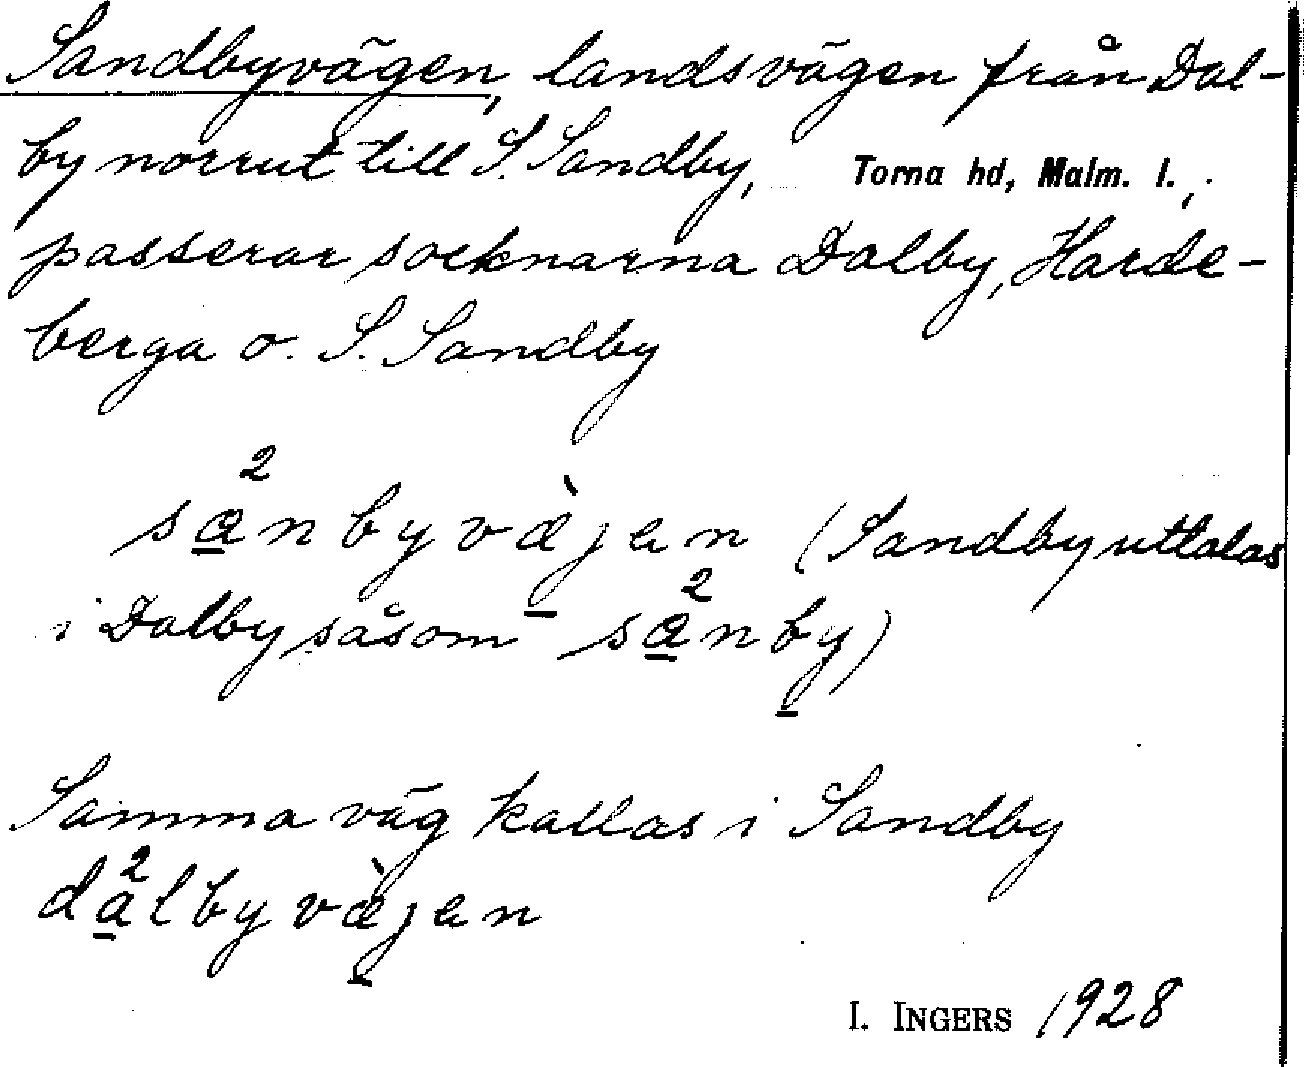 Sandbyvägen, landsvägen från Dal-
by norrut till S. Sandby, Torna hd, Malm. l.,
passerar socknarna Dalby, Harde-
berga o. S. Sandby
sa̲²nbyvæ̲̀jen (Sandby uttalas
i Dalby såsom sa̲²nby̲)
Samma väg kallas i Sandby
da̲²lbyvæ̲̀jen
I. INGERS 1928